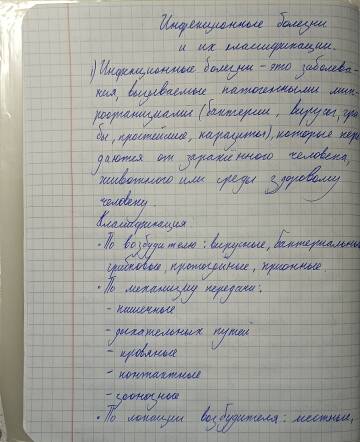 Инфекционные болезни
и их классификации.
1) Инфекционные болезни - это заболева-
ния, вызываемые патогенными мик-
роорганизмами (бактерии, вирусы, гри-
бы, простейшие, паразиты), которые пере-
даются от зараженного человека,
животного или среды здоровому
человеку.
Классификация
• По возбудителю: вирусные, бактериальные
грибковые, протозойные, прионные.
• По механизму передачи:
- кишечные
- дыхательных путей
- кровяные
- контактные
- зоонозные
• По локации возбудителя: местные,